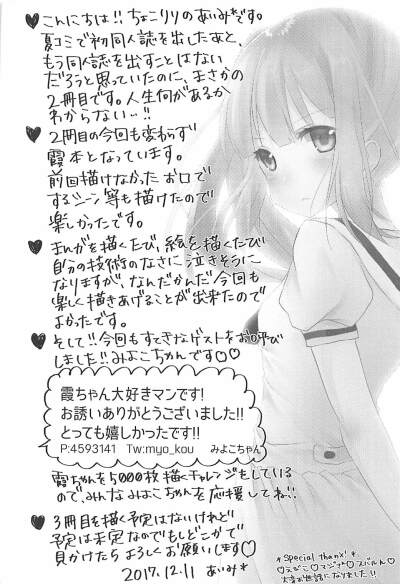 ♥こんにちは!! ちょこりりのあいみです。
夏コミで初同人誌を出したあと、
もう同人誌を出すことはない
だろうと思っていたのに、まさかの
2冊目です。人生何があるか
わからない…!!
♥2冊目の今回も変わらず
霞本となっています。
前回描けなかったお口で
するシーン等も描けたので
楽しかったです。
♥まんがを描くたび、絵を描くたび
自分の技術のなさに泣きそうに
なりますが、なんだかんだ今回も
楽しく描きあげることが出来たので
よかったです。
♥そして!! 今回もすてきなゲストをお呼び
しました!! みよこちゃんです♡♡
霞ちゃん大好きマンです!
お誘いありがとうございました!!
とっても嬉しかったです!!
P:4593141 Tw:myo_kou みよこちゃん
霞ちゃんを5000枚描くチャレンジもしている
ので、みんなみよこちゃんを応援してね!!
♥3冊目を描く予定はないけれど
予定は未定なのでもしどこかで
見かけたらよろしくお願いします♡
2017.12.11 あいみ*
*special thanx!*
♡えびこ♡マジナ♡スバルん♡
大変お世話になりました!!